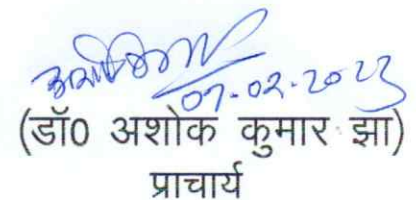 07-02-2023
(डॉ0 अशोक कुमार झा)
प्राचार्य